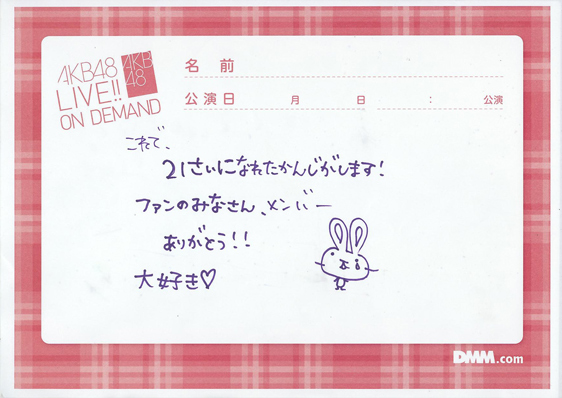 AKB48
LIVE!!
ON DEMAND
AKB
48
名 前
公演日 月 日 : 公演
これで、
21さいになれたかんじがします!
ファンのみなさん、メンバー
ありがとう!!
大好き♡
DMM.com